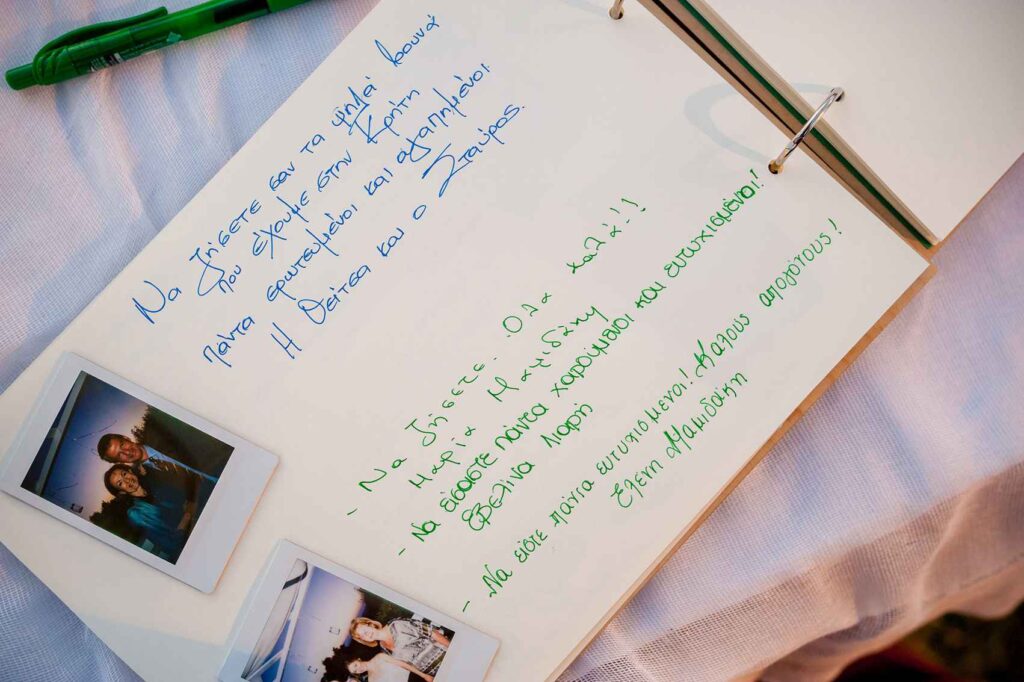 Να ζήσετε σαν τα ψηλά βουνά
που έχουμε στην Κρήτη
πάντα ερωτευμένοι και αγαπημένοι.
Η Θείτσα και ο Σταύρος.
- Να ζήσετε. Ολα καλά!-!
Μαρία Μαμιδάκη
- Να είσαστε πάντα χαρούμενοι και ευτυχισμένοι!
Εβελίνα Λιαρή
- Να είστε πάντα ευτυχισμενοι! Καλους απογόνους!
Ελένη Μαμιδάκη